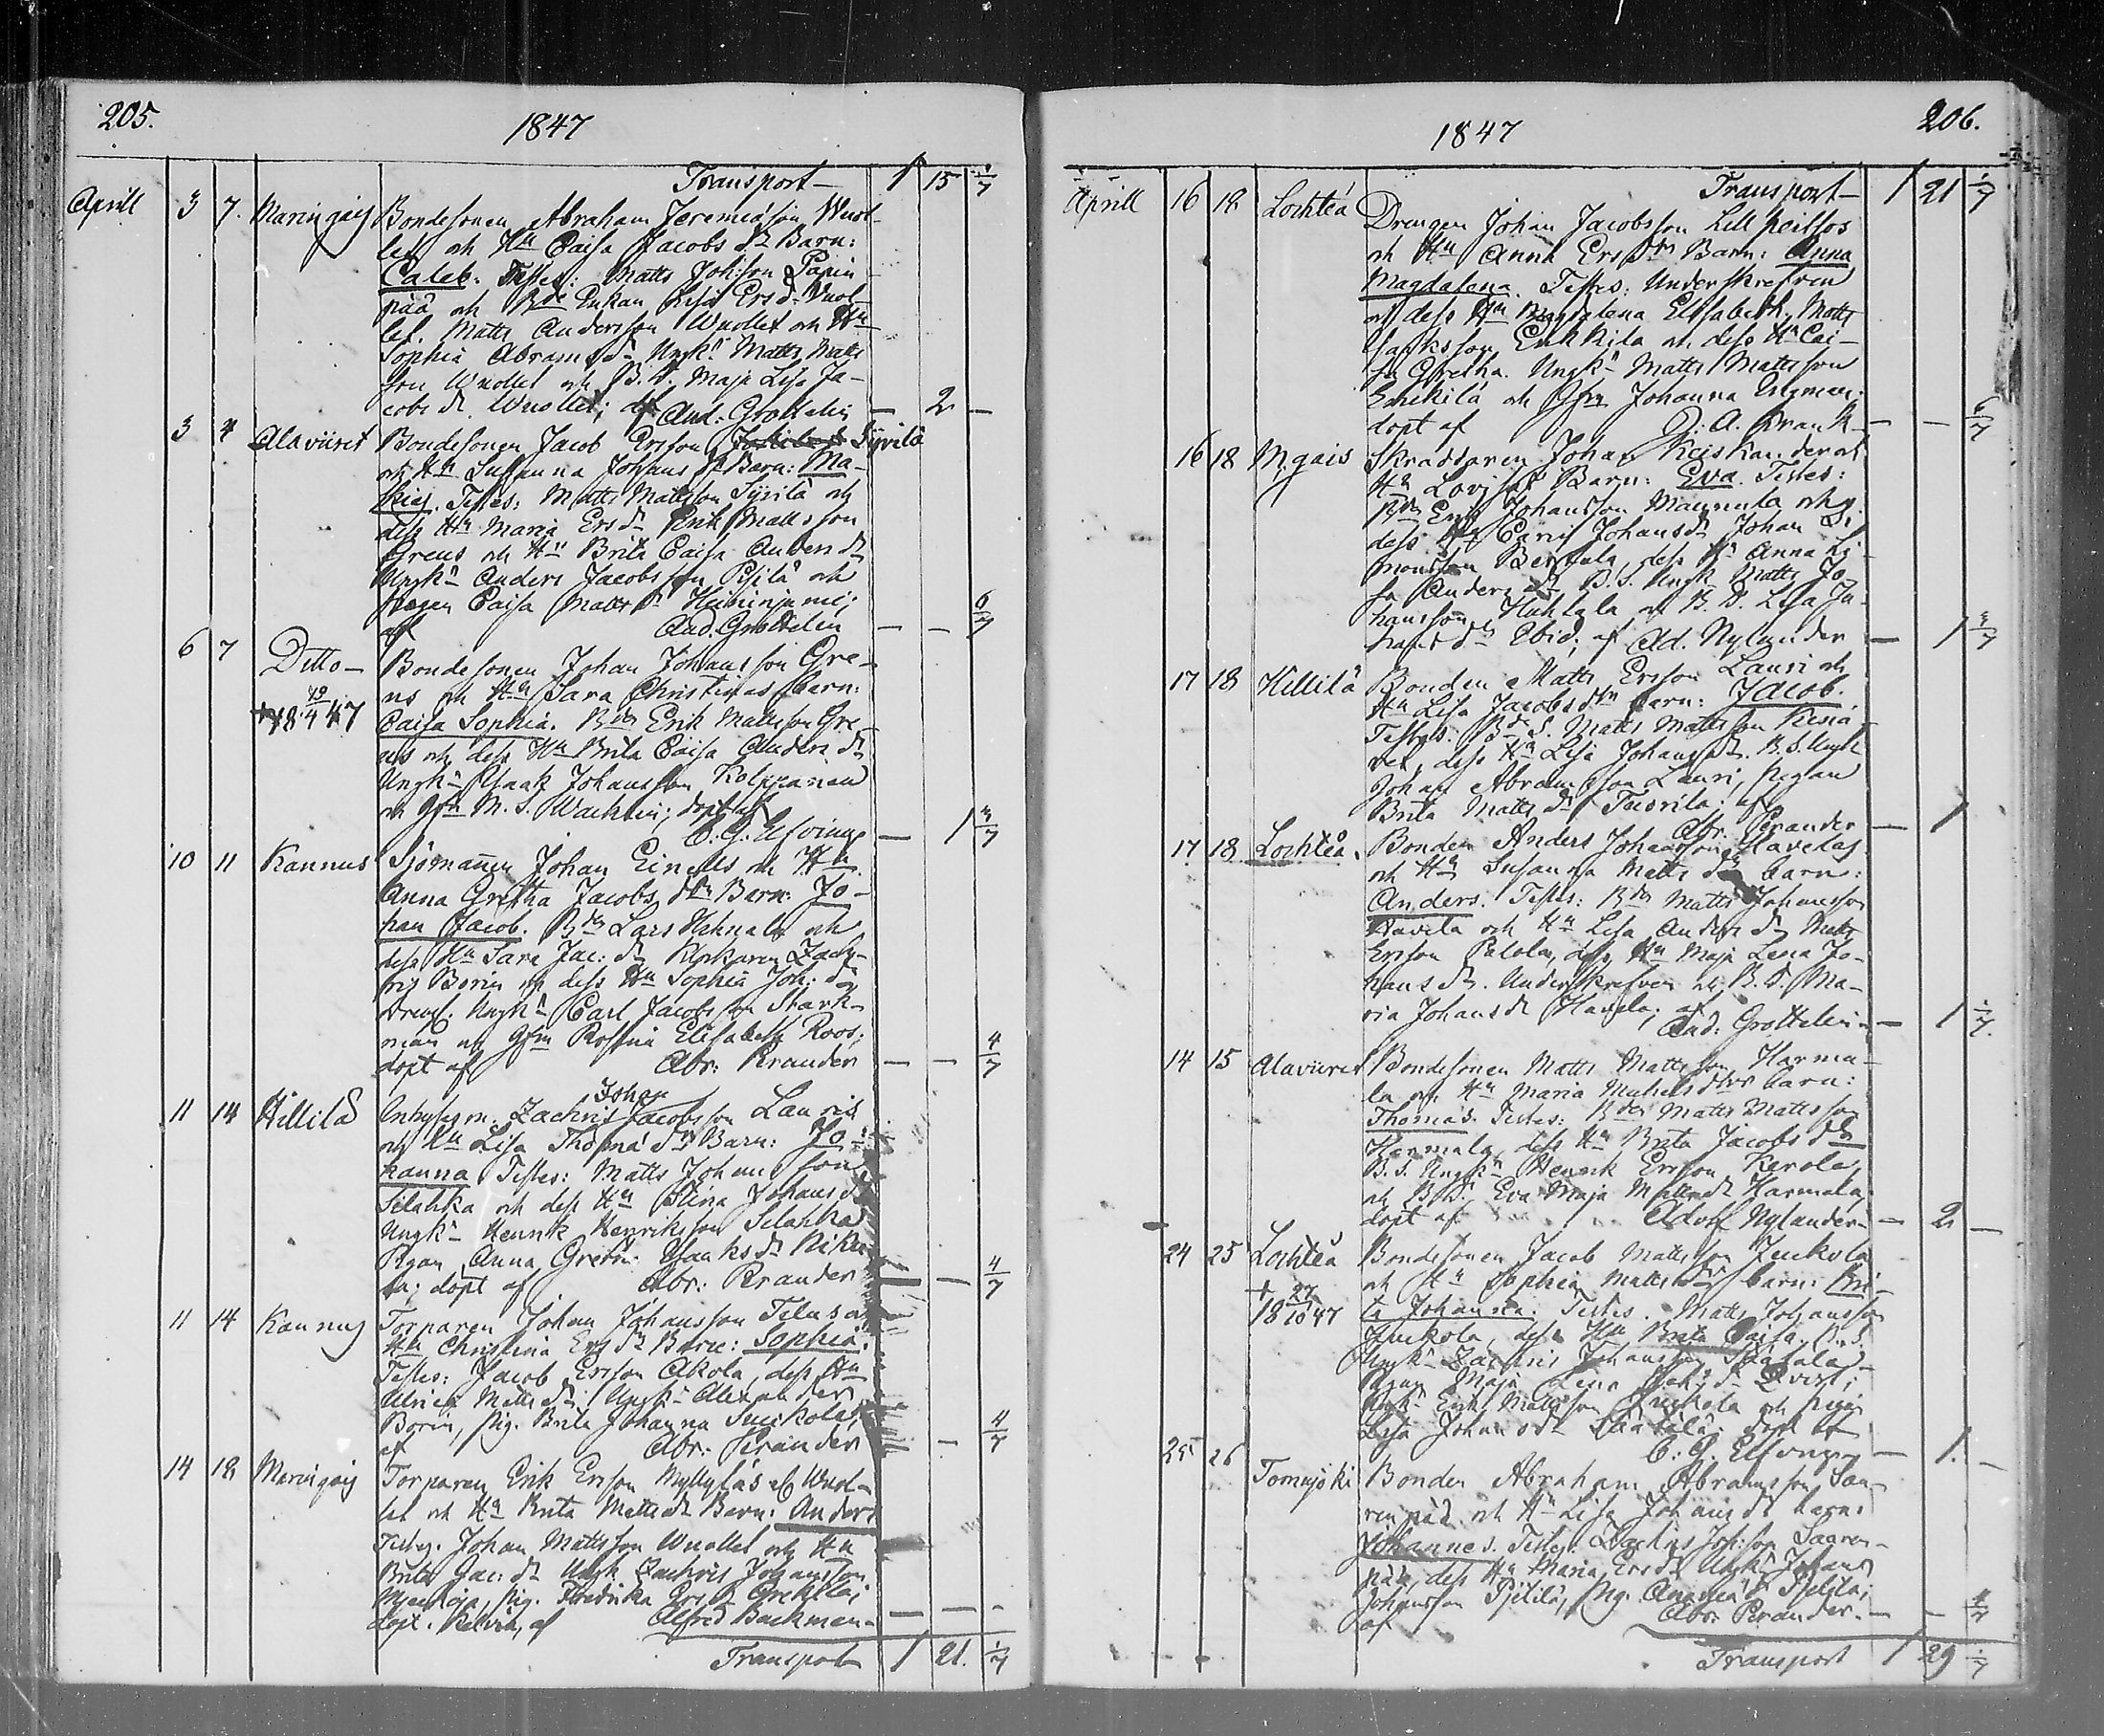 205.
1847
Transport — 1 15 1/7
Aprill 3 7. Maringais Bondesonen Abraham Jeremiasson Wuol-
let och Hu Caisa Jacobs dr Barn:
Caleb. Testes: Matts Joh:son Papin
pää och Bde Enkan Lisa Ersd. Wuol-
let. Matts Andersson Wuollet och Hu
Sophia Abramsd. Ungk. Matts Matts
son Wuollet och B. D. Maja Lisa Ja-
cobs dr Wuollet; af And: Grottelin — 2 —
3 4 Alaviiret Bondesonen Jacob Ersson Syrilä
och Hu Susanna Johans dr Barn: Ma-
thias. Testes: Matts Mattsson Syrilä och
dess Hu Maria Ersdr Erik Mattsson
Greus och Hu Brita Caisa Anders dr
Ungk. Anders Jacobsson Pisilä och
pigan Caisa Matts dr
af And. Grottelin — — 6/7
6 7 Ditto — Bondesonen Johan Johansson Gre-
us och Hu Sara Christinas barn:
+ 18 19/4 47 Caisa Sophia. Bdn Erik Mattsson Gre-
us och dess Hu Brita Caisa Anders dr
Ungk. Isaak Johansson Kolppanen
och Jfn M. S. Wacklin; döpt af
C. G. Elfving — 1 3/7
10 11 Kannus Sjömannen Johan Einells och Hu
Anna Gretha Jacobs dtr Barn: Jo-
han Jacob. Bdn Lars Hihnala och
dess Hu Sara Jac: dr Klockaren Zach-
ris Borin och dess Hu Sophia Joh: dr
Ungk. Carl Jacobsson Stark-
man och Jfrn Rosina Elisabeth Roos;
döpt af Abr: Perander — — 4/7
Johan
11 14 Hillilä Inhysesm. Zachris Jacobsson Lauris
och Hu Lisa Thoma dr Barn: Jo-
hanna Testes: Matts Johansson
Silahka och dess Hu Elina Johans dr
Ungk. Henrik Henriksson Silahka
Pigan Anna Greta Isaks dr Niku-
la; döpt af Abr: Perander — — 4/7
11 14 Kannus Torparen Johan Johansson Tilus o
Hu Christina Ers dr Barn: Sophia.
Testes: Jacob Ersson Akola, dess Hu
Ulrica Matts dr; Ungk. Alexander
Borin, pig. Brita Johanna Junkola;
af Abr: Perander — 4/7
14 18 Maringais Torparen Erik Ersson Myllyläs Wuol-
let och Hu Brita Matts dr Barn: Anders
Testes. Johan Mattsson Wuollet och Hu
Brita Jac: dr Ungk Zachris Johansson
pig. Fredrika Ers dr
döpt. Kelviå, af Alfred Backman — — —
Transport 1 21. 1/7
206.
1847
Transport — 1 21 1/7
Aprill 16 18 Lochteå Drengen Johan Jacobsson Lill
och Hu Anna Ers dtr Barn: Anna
Magdalena. Testes: Underskrefven
och dess Hu Magdalena Elisabeth, Matts
Isaksson Erkkilä och dess Hu Cai-
sa Gretha. Ungk. Matts Mattsson
Erkkilä och Jfrn Johanna Engman:
döpt af J. A. Frank — — 6/7
16 18 M.gais Skraddaren Johan Keiskander och
Hu Lovisas Barn: Eva. Testes:
Bdn Erik Johansson Mannula och
dess Hu Carin Johansdr Johan Si-
monsson Bertula, dess Hu Anna Li-
sa Anders dr, B. S. Ungk. Matts Jo-
hansson Huhtala och B. D. Lisa Jo-
hans dr Ibid; af Ad. Nylander — 1 3/7
17 18 Hillilä Bonden Matts Ersson Lauri och
Hu Lisa Jacobs dtrs barn: Jacob.
Testes: Bde S. Matts Mattsson
dess Hu Lisa Johans dr. B. S. Ungk
Johan Abramsson Lauri, pigan
Brita Matts dr Tuorila; af
Abr. Perander — 1
17 18 Lochteå. Bonden Anders Johansson Havelas
och Hu Susanna Matts drs barn:
Anders. Testes: Bdn Matts Johansson
Havela och Hu Lisa Anders dr Matts
Ersson Palola, dess Hu Maja Lena Jo-
hans dr. Underskrefven och B. D. Ma-
ria Johansdr Havela; af
And: Grottelin — 1 1/7.
14 15 Alaviiret Bondesonen Matts Mattsson Harma-
la och Hu Maria Michelsdtrs barn:
Thomas. Testes: Bdn Matts Mattsson
Harmala, dess Hu Brita Jacobs dtr
B. S. Ungk. Henrik Ersson Kerola
och B. D. Eva Maja Mattsdr Harmala
döpt af Adolf Nylander — 2 —
24 25 Lochteå Bondesonen Jacob Mattsson Junkola
och Hu Sophia Matts drs barn: Bri-
+ 18 27/10 47 ta Johanna. Testes. Matts Johansson
Junkola, dess Hu Brita Caisa, B. S.
Ungk. Zachris Johansson Säätälä
Pigan Maja Lena Joh: dr Qvist;
Ungk. Erik Mattsson Junkola och pigan
Lisa Johans dr Säätälä; döpt af
C. G. Elfving — 1. —
25 26 Tomujoki Bonden Abraham Abramsson Saa-
renpää och Hu Lisa Johans dr barn:
Johannes. Testes. Zachris Joh:son Saaren-
pää, dess Hu Maria Ersdr Ungk. Johan
Johansson Pjetilä, Pig. dr Pjetilä;
af Abr. Perander — — 4/7
Transport 1 29 1/7